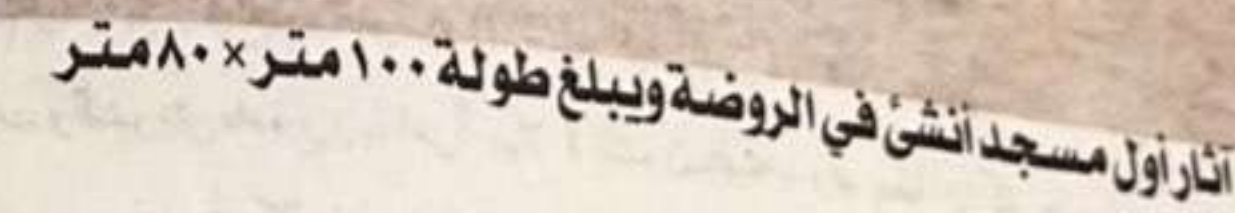 آثار أول مسجد أنشئ في الروضة ويبلغ طولة ١٠٠ متر × ٨٠ متر